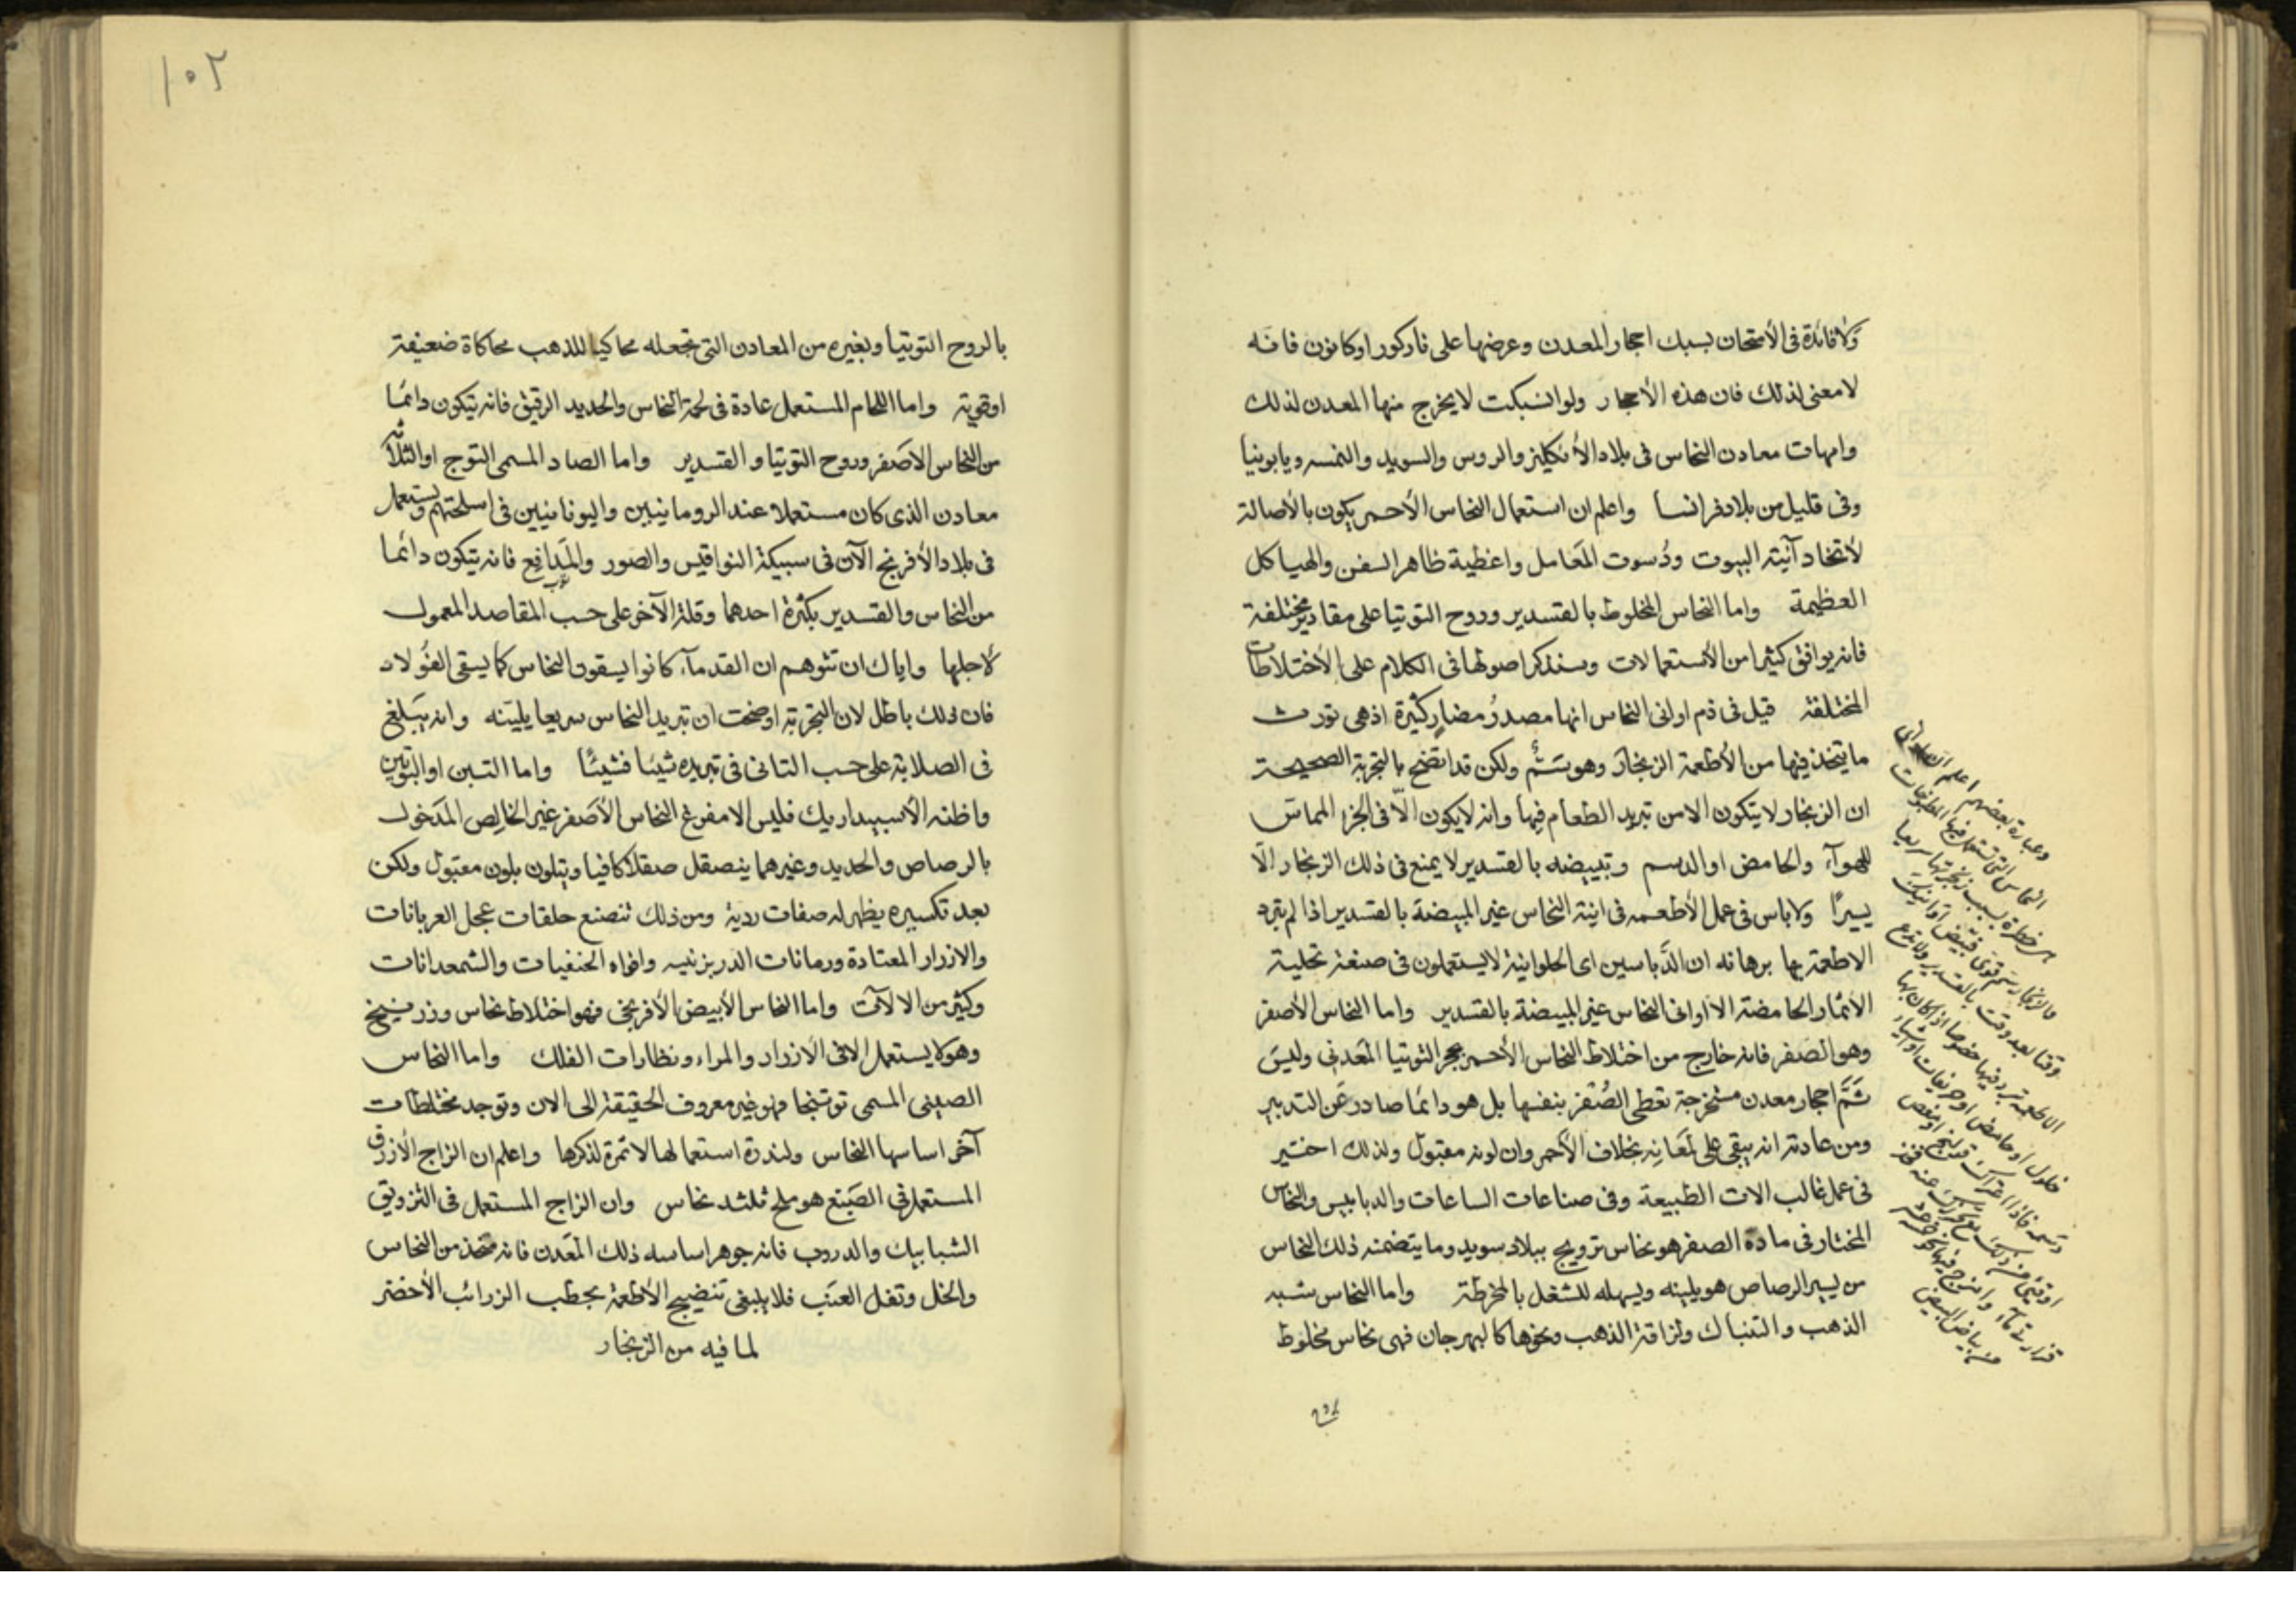 ولا فائدة فى الأمتحان بسبك احجار المعدن وعرضها على نار كور او كانون فانه
لا معنى لذلك فان هذه الأحجار ولو انسبكت لا يخرج منها المعدن لذلك
وامهات معادن النحاس فى بلاد الأنكليز والروس والسويد والنمسه ويابونيا
وفى قليل من بلاد فرانسا واعلم ان استعمال النحاس الأحمر يكون بالأصالة
لأتخاد آنية البيوت ودُسوت المَعامل واغطية ظاهر السفن والهياكل
العظيمة واما النحاس المخلوط بالقسدير وروح التوتيا على مقادير مختلفة
فانه يوافق كثيرا من الأستعمالات وسنذكر اصولها فى الكلام على الأختلاطات
المختلفة قيل فى ذم اوانى النحاس انها مصدرُ مضارٍ كثيرة اذ هى تورث
ما يتخذ فيها من الأطعمة الزنجار وهو سَمٌّ ولكن قد اتضح بالتجربة الصحيحة
ان الزنجار لا يتكون الا من تبريد الطعام فيها وانه لا يكون الّا فى الجزء المماس
للهوآء والحامض او الدسم وتبييضه بالقسدير لا يمنع فى ذلك الزنجار الّا
يسيرًا ولا باس فى عمل الأطعمه فى انية النحاس غير المبيضة بالقسدير اذا لم تبرد
الاطعمة بها برهانه ان الدَّباسين اى الحلوانية لا يستعملون فى صنعة تحلية
الأثمار الحامضة الا اوانى النحاس غير المبيضة بالقسدير واما النحاس الأصفر
وهو الصفر فانه خارج من اختلاط النحاس الأحمر بحجر التوتيا المَعدنى وليسَ
ثَمَّ احجار معدن مستخرجة تعطى الصُفْر بنفسها بل هو دائما صادر عَن التدبير
ومن عادته انه يبقى على لمَعَانه بخلاف الأحمر وان لونه مقبول ولذلك اختير
فى عمل غالب الات الطبيعة وفى صناعات الساعات والدبابيس والنحاس
المختار فى مادة الصفر هو نحاس ترويج ببلاد سويد وما يتضمنه ذلك النحاس
من يسير الرصاص هو يلينه ويسهله للشغل بالمخرطة واما النحاس شبه
الذهب والتنباك ولزاقة الذهب ونحوها كالبهرجان فهى نحاس مخلوط
وعبارة بعضهم اعلم ان اوانى
النحاس التى تستعمل فيها المطبوخات
خطرة بسبب زنجرتها سريعا
فالزنجار سَم قوى
وقتا بعد وقت بالقسدير ولا تدع
الاطعمة تبرد فيها خصوصا اذا كان بها
خلول او حامض
من بياض البيض
١٠٢
بالروح التوتيا وبغيره من المعادن التى تجعله محاكيا للذهب محاكاة ضعيفة
او قوية واما اللحام المستعمل عادة فى لحمة النحاس والحديد الرقيق فانه يتكون دائما
من النحاس الأصفر وروح التوتيا والقسدير واما الصاد المسمى التوج او الثلاثة
معادن الذى كان مستعملا عند الرومانيين واليونانيين فى اسلحتهم ويستعمل
فى بلاد الأفرنج الآن فى سبيكة النواقيس والصور والمَدافِع فانه يتكون دائما
من النحاس والقسدير بكثرة احدهما وقلة الآخر على حسب المقاصد المعمول
لأجلها واياك ان تتوهم ان القدمآء كانوا يسقون النحاس كما يسقى الفُولاد
فان ذلك باطل لان التجربة اوضحت ان تبريد النحاس سريعا يلينه وانه يَبلغ
فى الصلابة على حسب التانى فى تبريده شيئا فشيئًا واما التسين او البوتين
واظنه الأسبيداريك فليس الا مفرغ النحاس الأصفر غير الخالِص المدَخول
بالرصاص والحديد وغيرهما ينصقل صقلا كافيا ويتلون بلون مقبول ولكن
بعد تكسيره يظهر له صفات ردية ومن ذلك تصنع حلقات عجل العربانات
والازرار المعتادة ورمانات الدربزنيه وافواه الحنفيات والشمعدانات
وكثير من الالآت واما النحاس الأبيض الأفرنجى فهو اختلاط نحاس وزرنيخ
وهو لا يستعمل الا فى الازرار والمراء ونظارات الفلك واما النحاس
الصينى المسمى توتنجا فهو غير معروف الحقيقة الى الان وتوجد مختلطات
آخر اساسها النحاس ولندرة استعمالها لا ثمرة لذكرها واعلم ان الزاج الأزرق
المستعمل فى الصَبْغ هو ملح ثلثه نحاس وان الزاج المستعمل فى التزويق
الشبابيك والدروب فانه جوهر اساسه ذلك المَعدن فانه متخذ من النحاس
والخل وتفل العنَب فلا ينبغى تنضيج الأطعمة بحطب الزرائب الأخضر
لما فيه من الزنجار